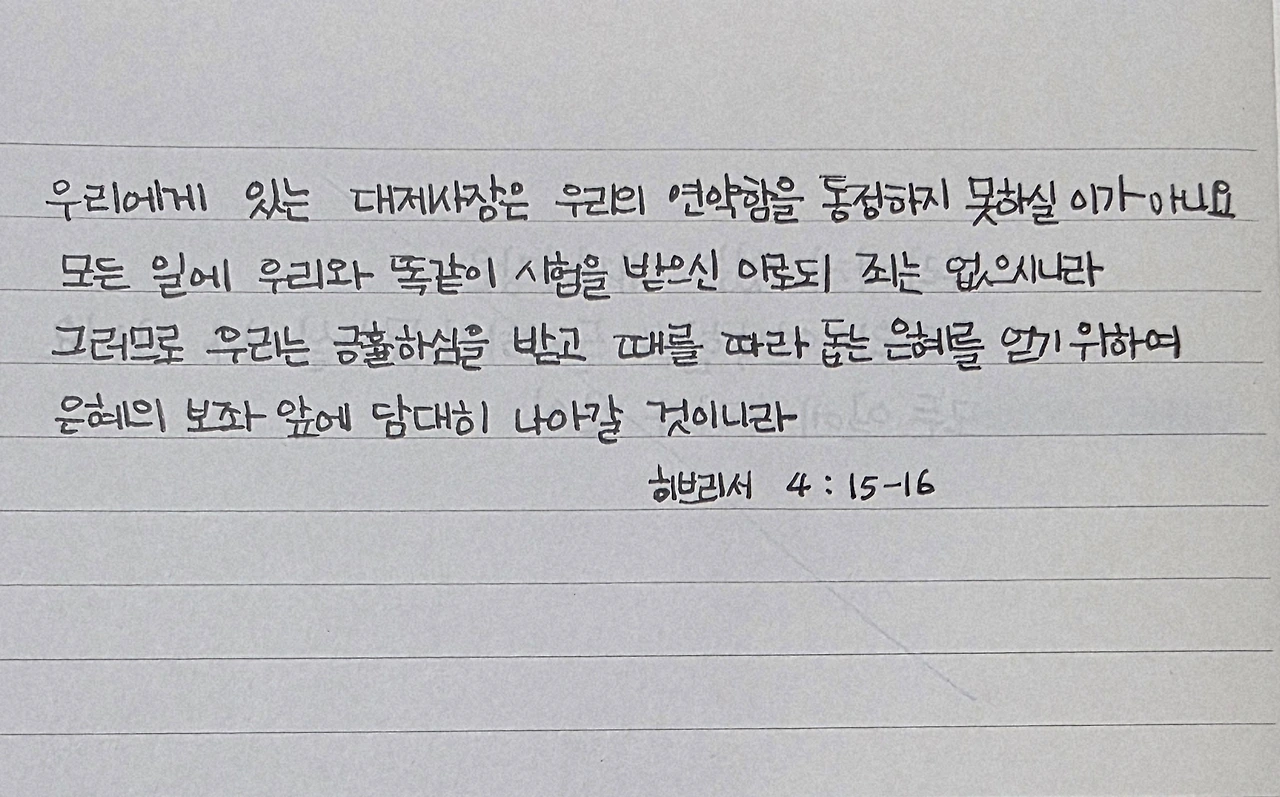 우리에게 있는 대제사장은 우리의 연약함을 동정하지 못하실 이가 아니요
모든 일에 우리와 똑같이 시험을 받으신 이로되 죄는 없으시니라
그러므로 우리는 긍휼하심을 받고 때를 따라 돕는 은혜를 얻기 위하여
은혜의 보좌 앞에 담대히 나아갈 것이니라
히브리서 4 : 15-16